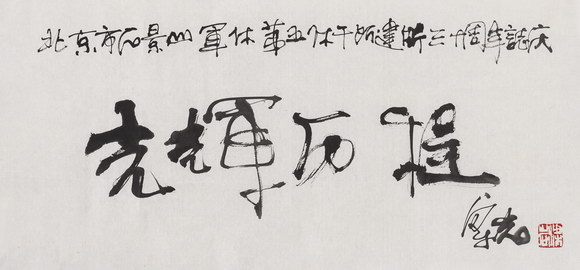 北京市石景山軍休第五休干所建所三十周年誌庆
光輝历程